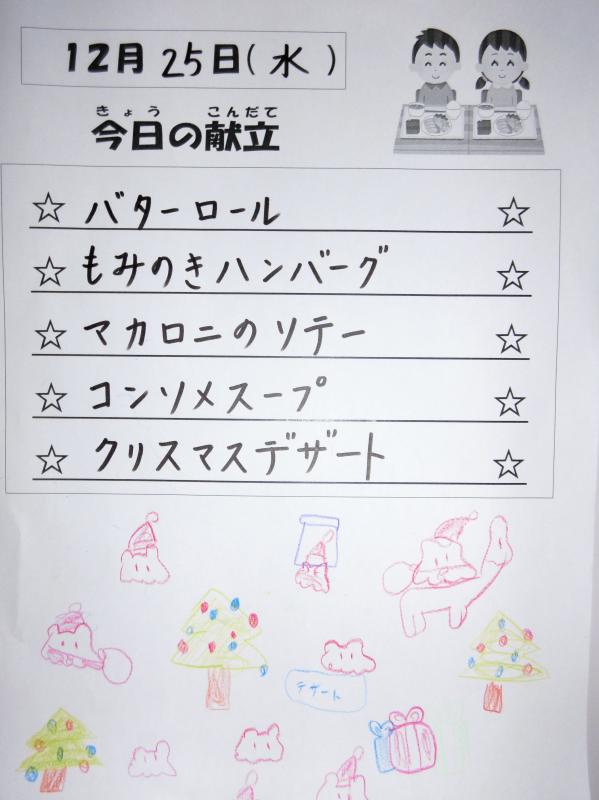 12月25日(水)
きょう こんだて
今日の献立
☆ バターロール ☆
☆ もみのきハンバーグ ☆
☆ マカロニのソテー ☆
☆ コンソメスープ ☆
☆ クリスマスデザート ☆
デザート